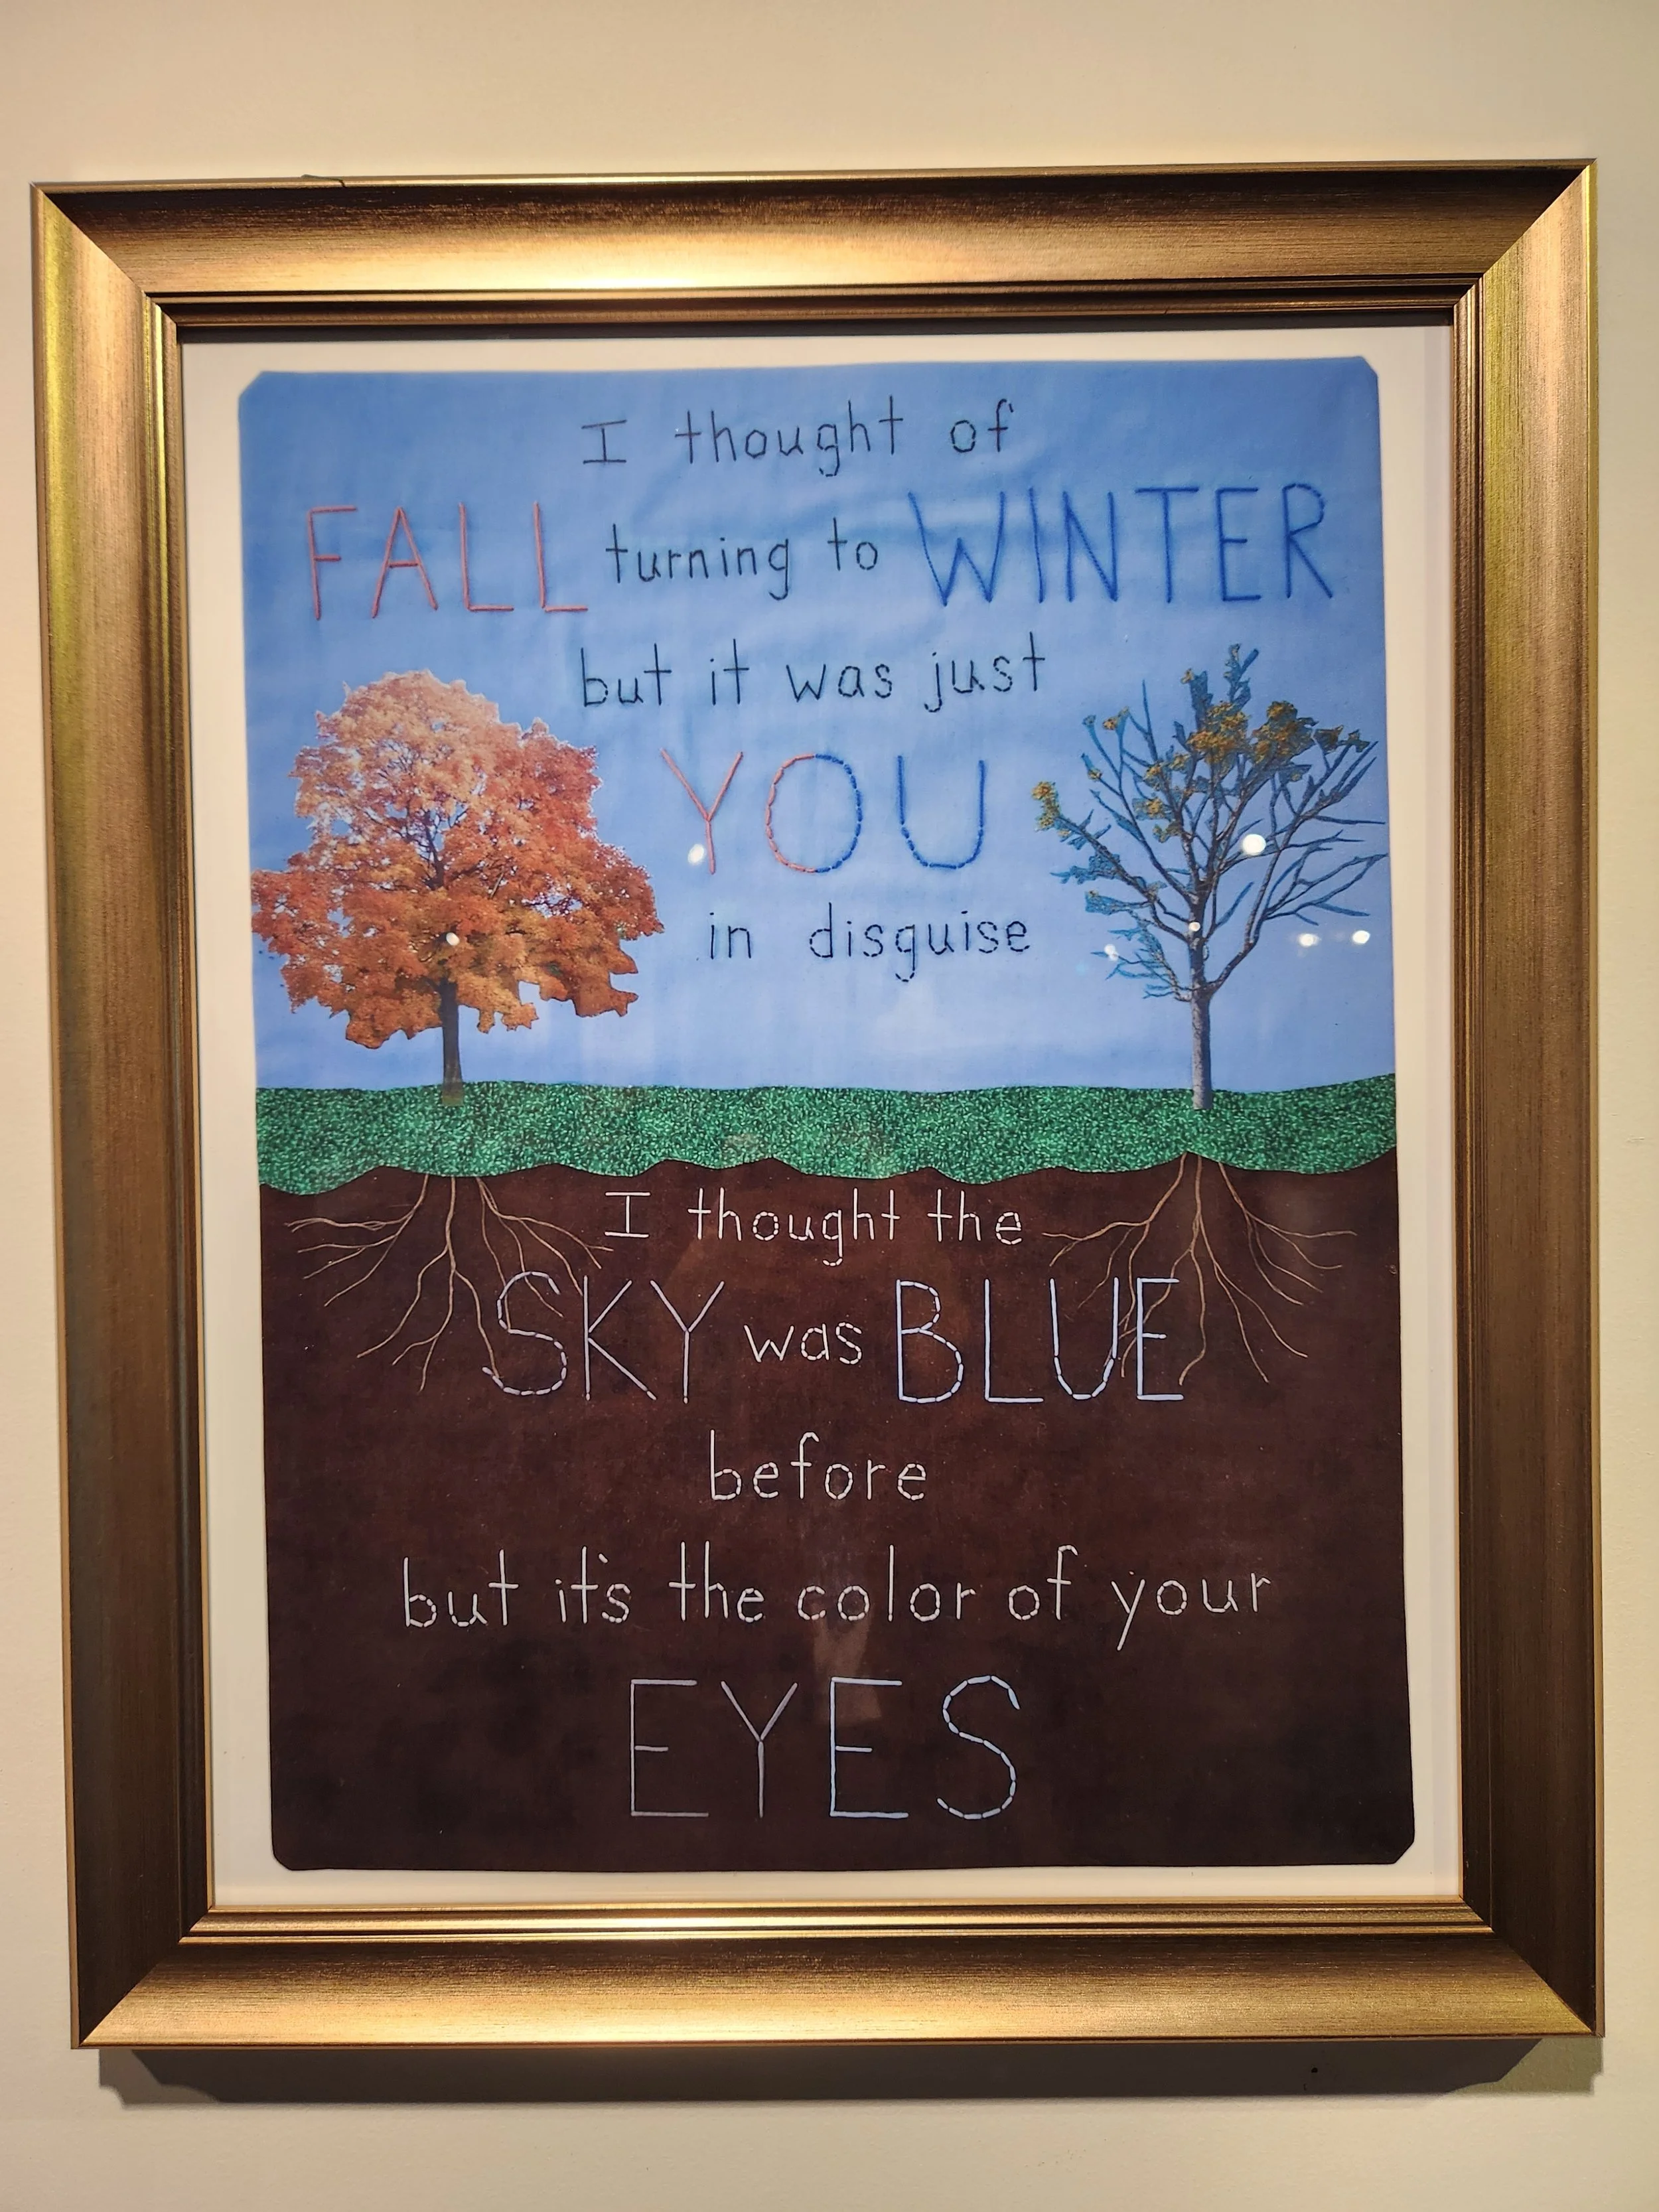 I thought of
FALL turning to WINTER
but it was just
YOU
in disguise
I thought the
SKY was BLUE
before
but it's the color of your
EYES